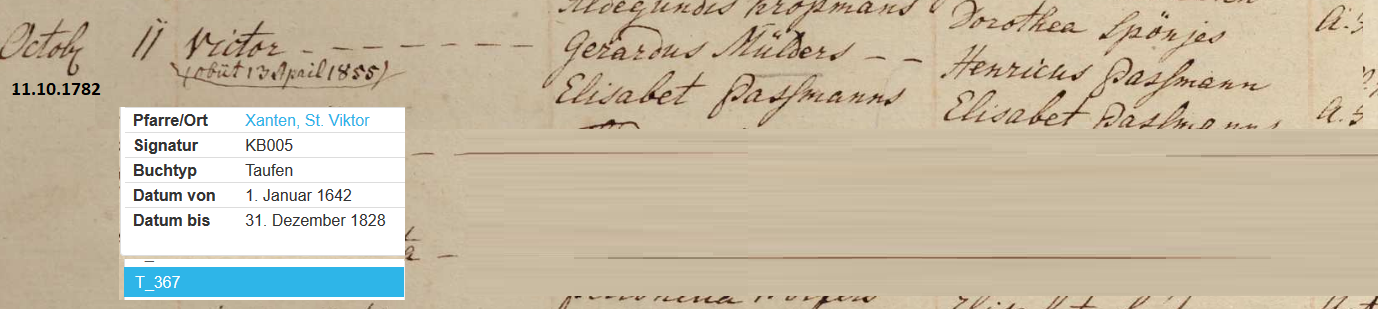 Aldegundis Kropmans
Octob 11 Victor - - - - - - - Gerardus Mülders - - Dorothea Spönjes a.5
(obiit 13 April 1855) Henricus Passmann
11.10.1782 Elisabet Passmanns Elisabet Passmanns a.5
Pfarre/Ort Xanten, St. Viktor
Signatur KB005
Buchtyp Taufen
Datum von 1. Januar 1642
Datum bis 31. Dezember 1828
T_367